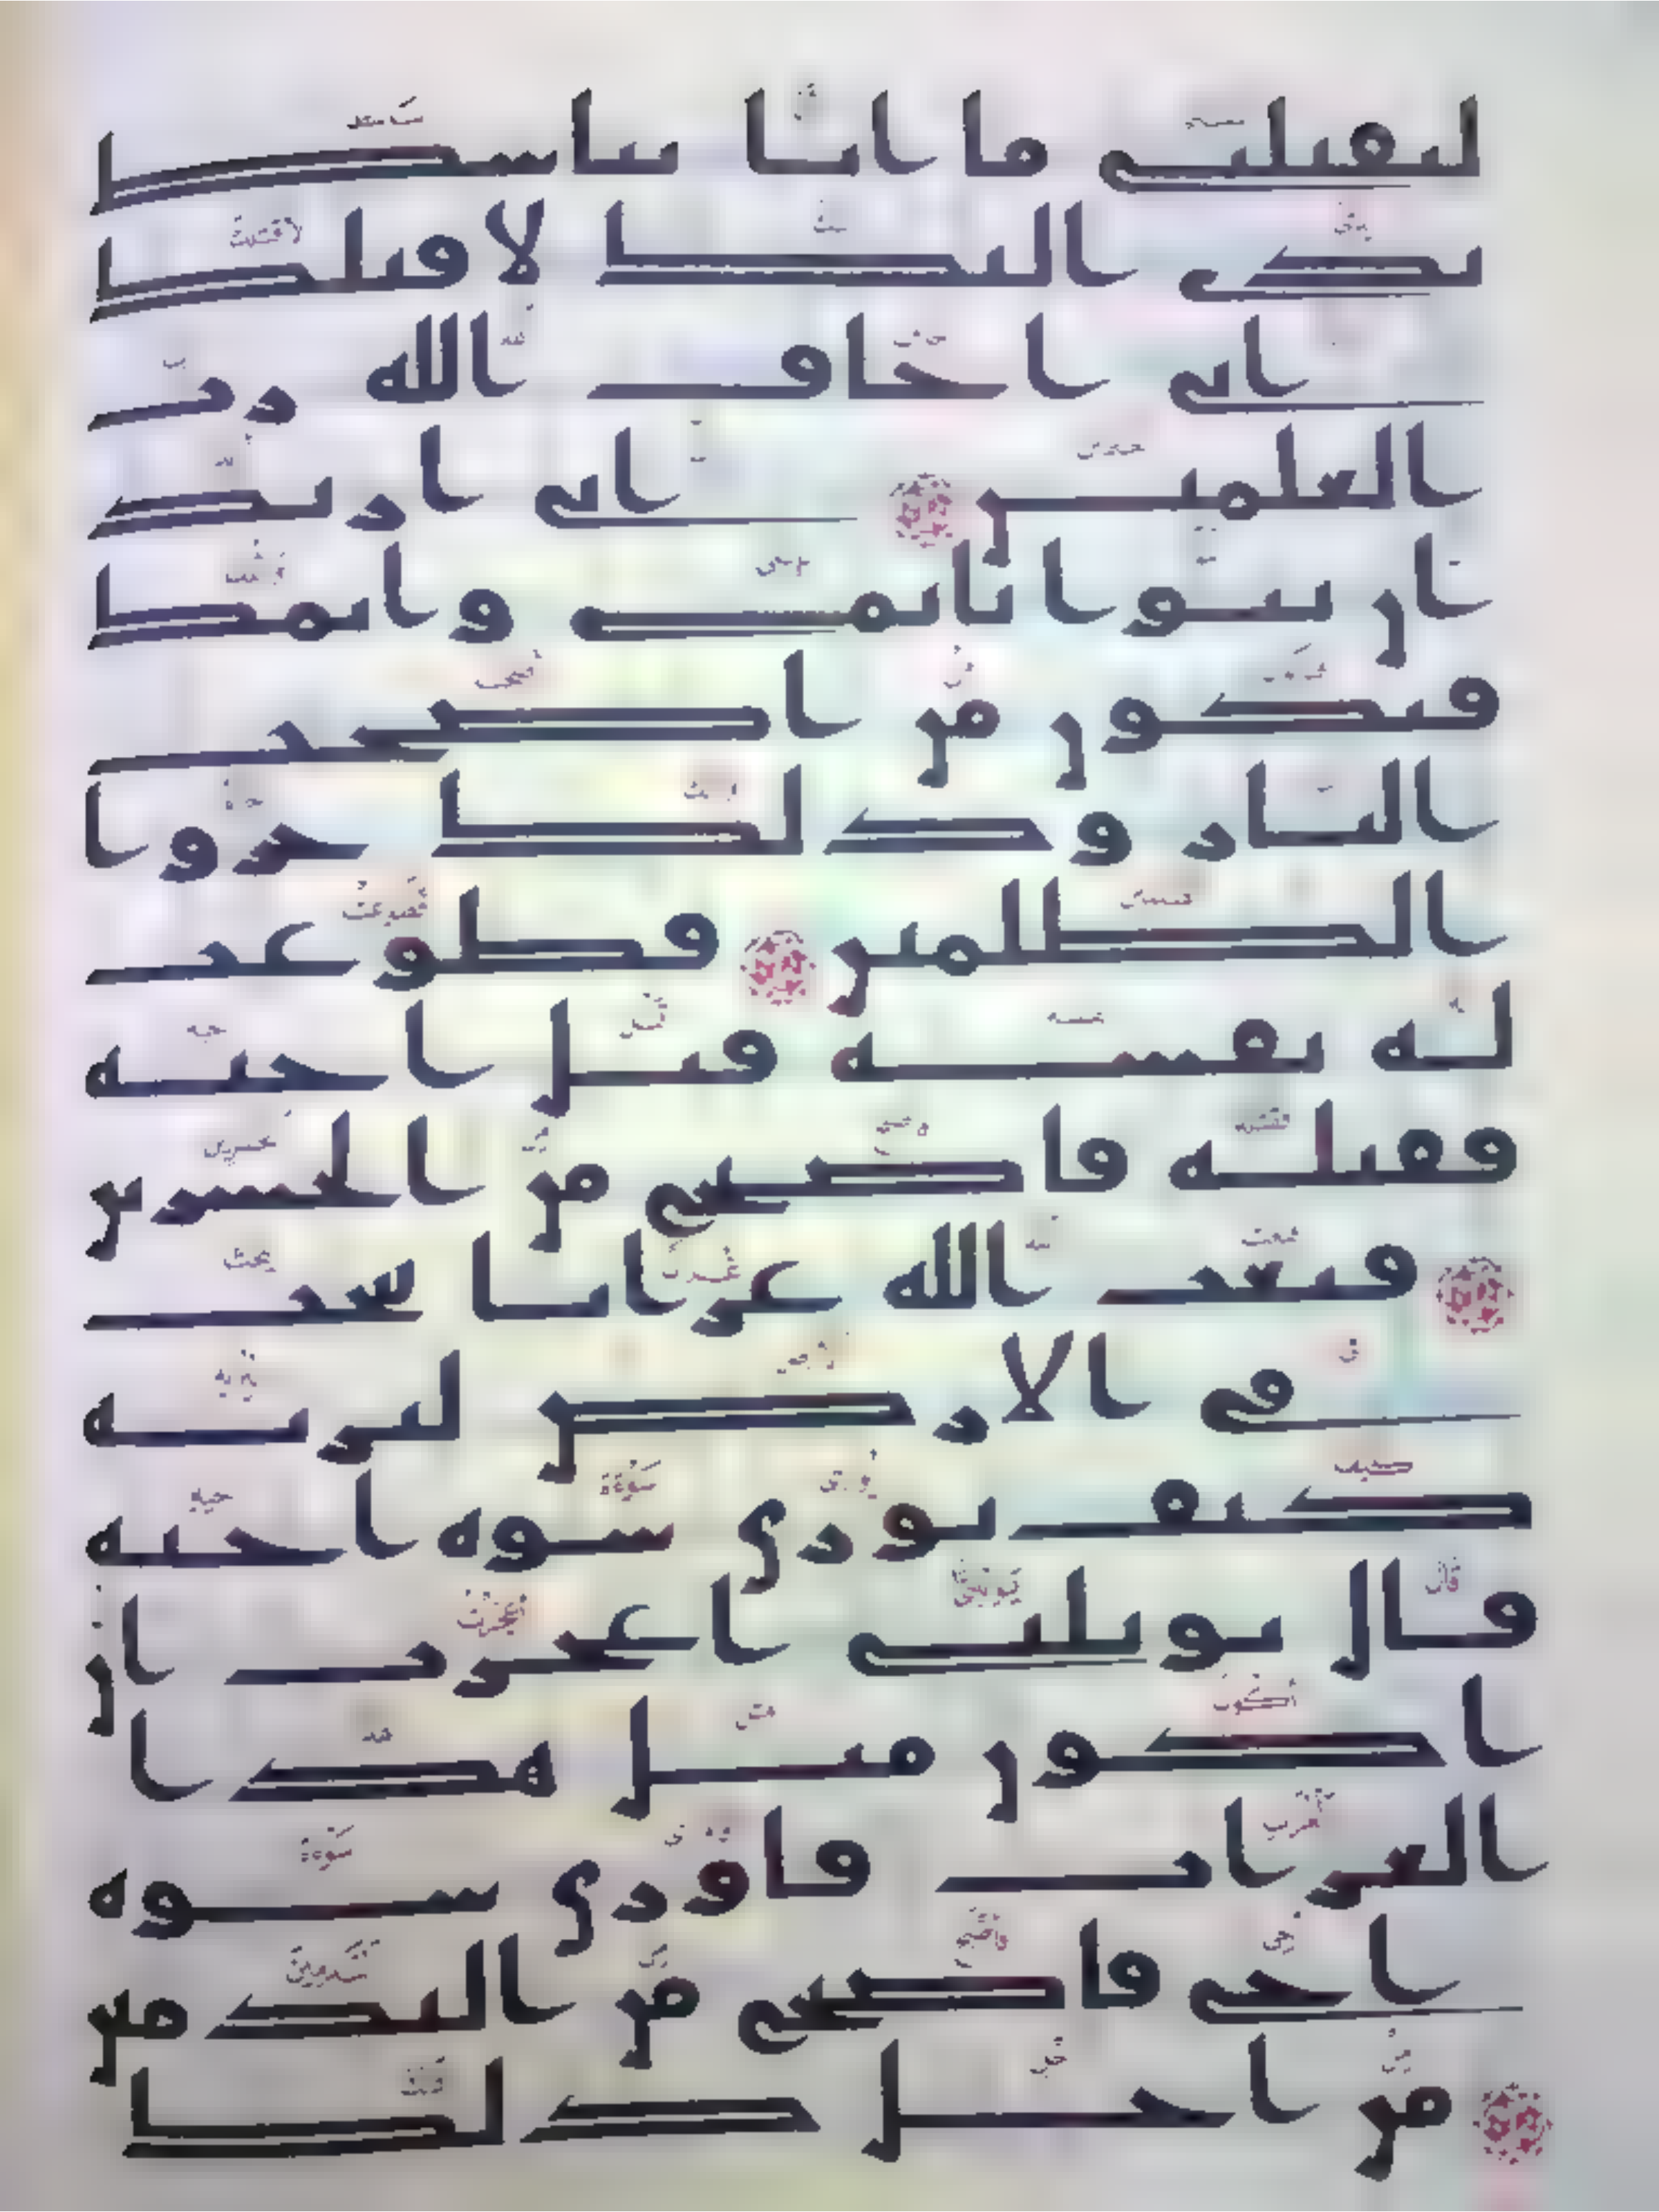 لتقتلنى ما انا بباسط
يدى اليك لاقتلك
انى اخاف الله رب
العلمين انى اريد
ان تبوا باثمى واثمك
فتكون من اصحب
النار وذلك جزوا
الظلمين فطوعت
له نفسه قتل اخيه
فقتله فاصبح من الخسرين
فبعث الله غرابا يبحث
فى الارض ليريه
كيف يورى سوه اخيه
قال يويلتى اعجزت ان
اكون مثل هذا
الغراب فاورى سوه
اخى فاصبح من الندمين
من اجل ذلك